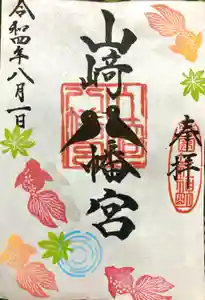 奉拝
山崎八幡宮
令和四年八月一日